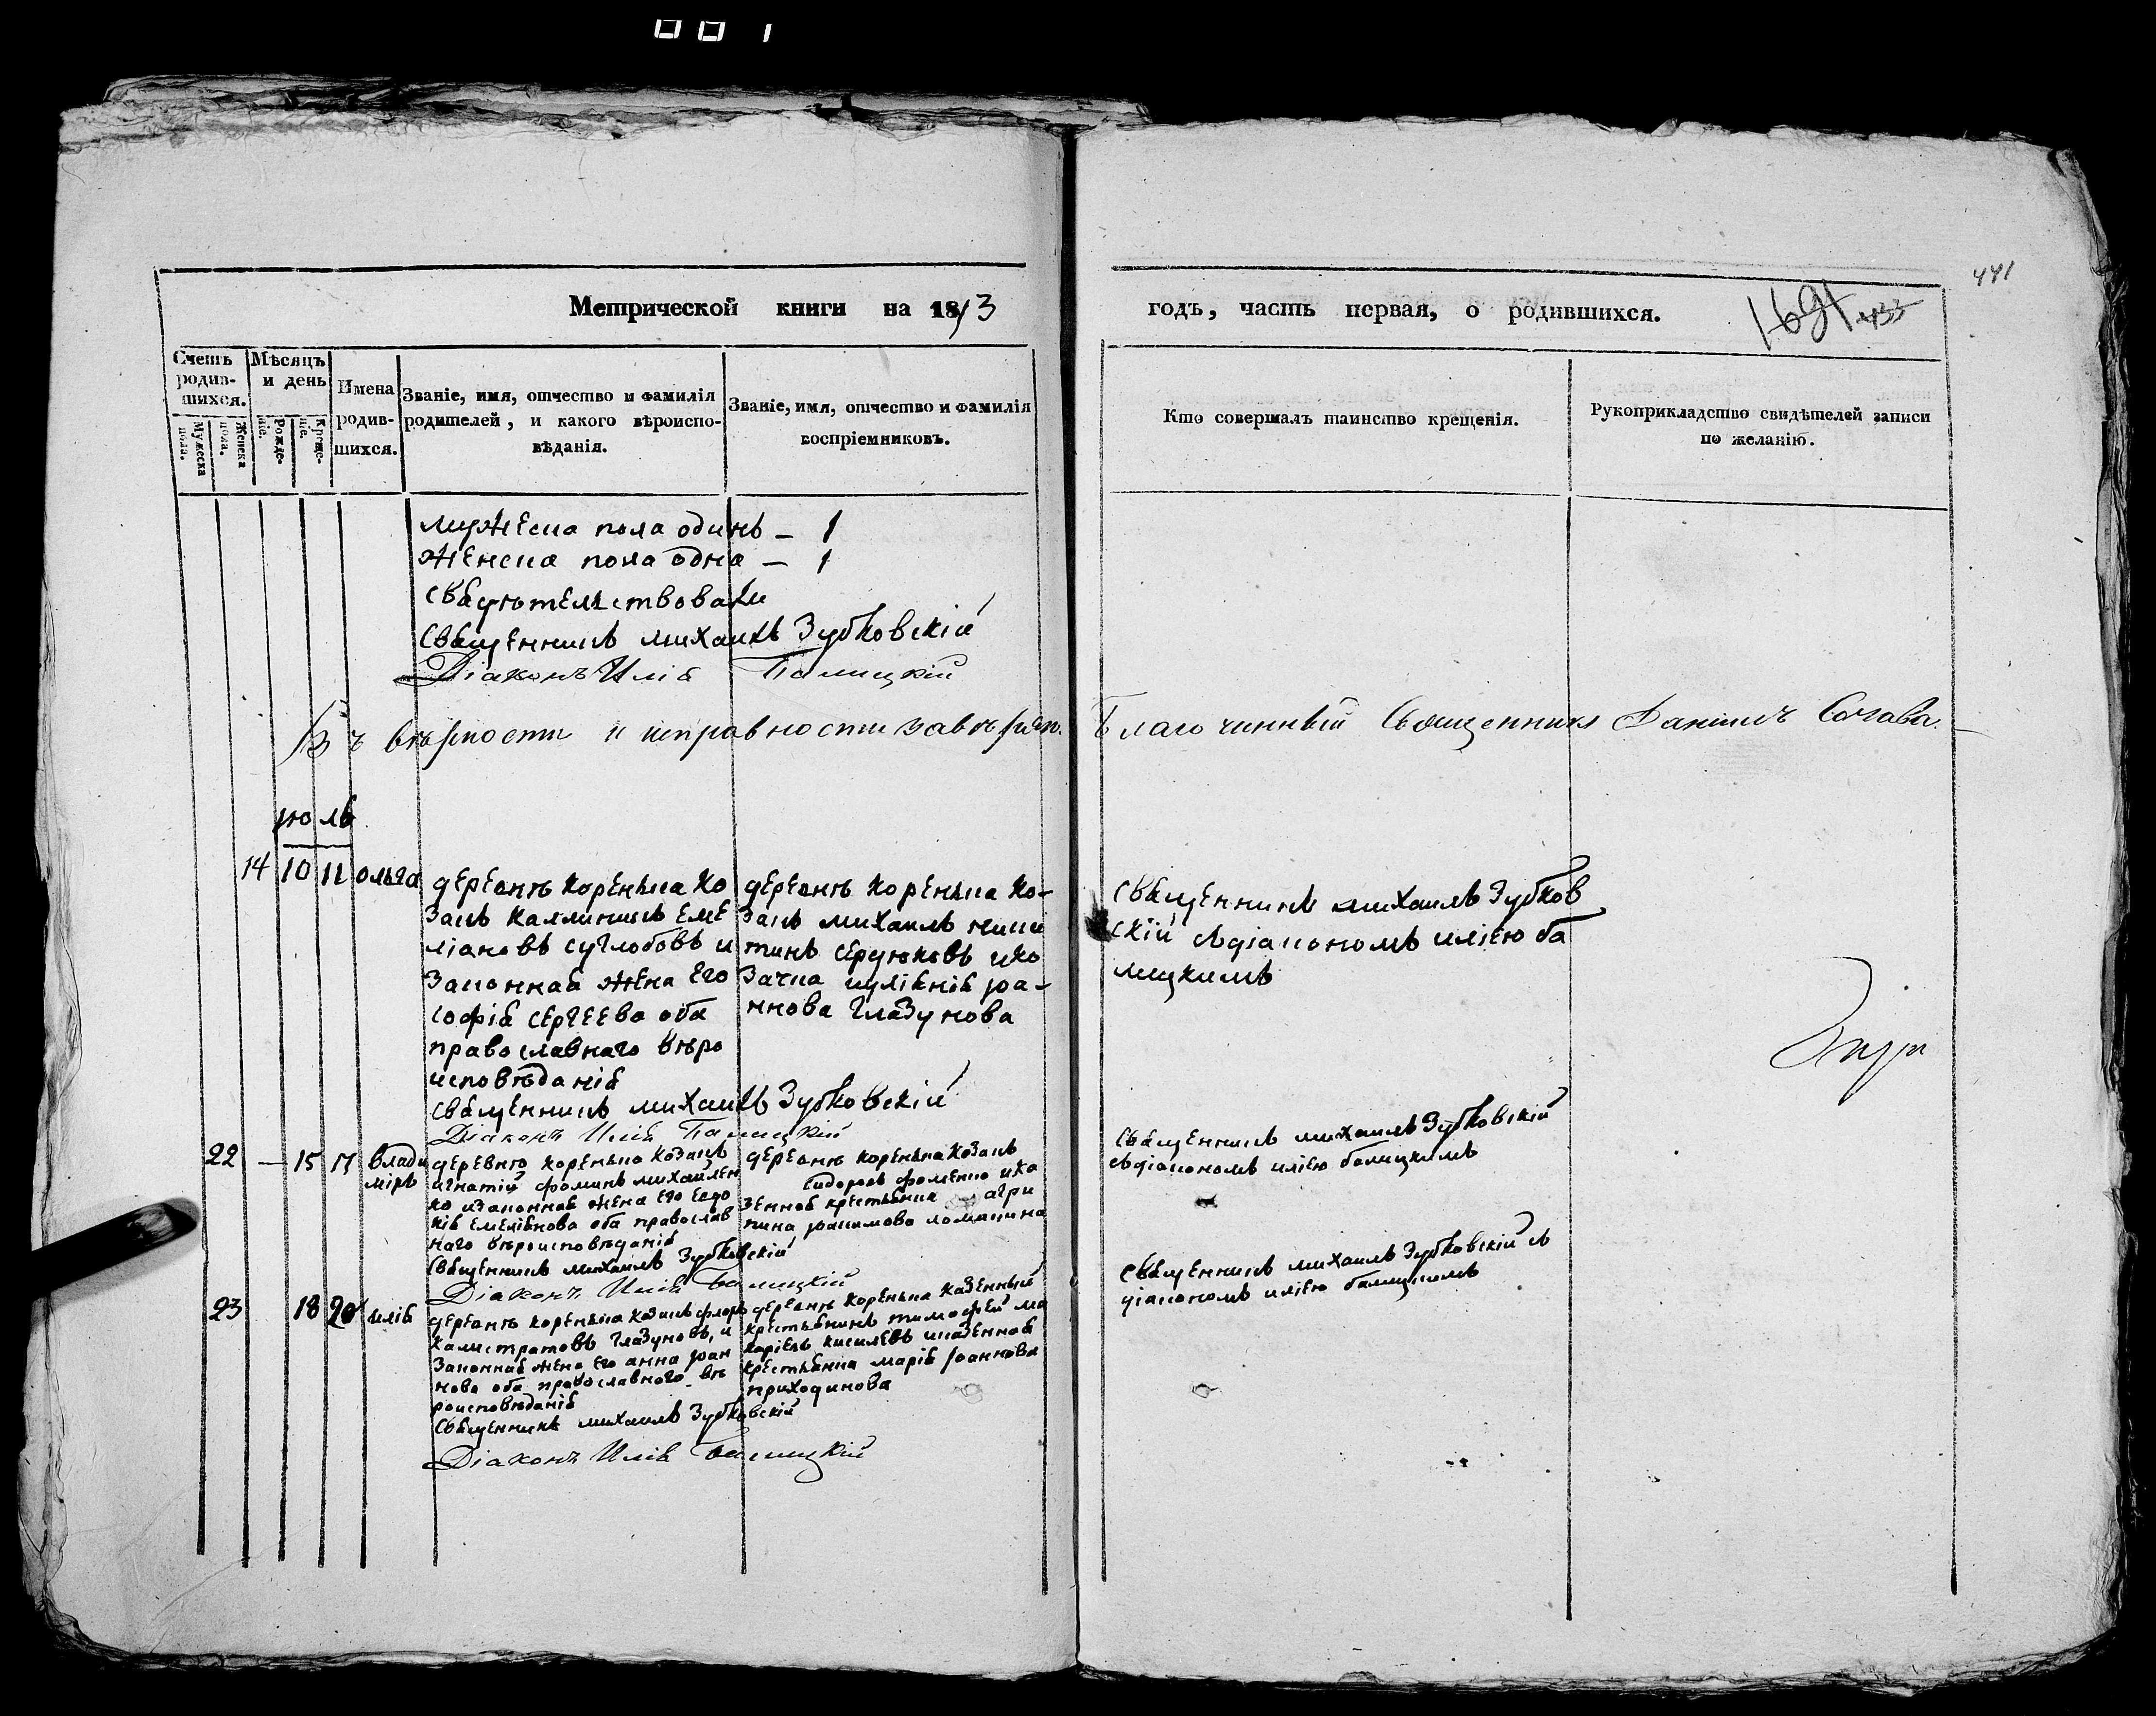 001
441
Метрической книги на 1843
годъ, часть первая, о родившихся.
1691 433
Счетъ родив- шихся.
Мужеска пола.
Женска пола.
Мѣсяцъ и день
Рожде- ніе.
Креще- ніе.
Имена родив- шихся.
Званіе, имя, отчество и фамилія
родителей, и какого вѣроиспо-
вѣданія.
Званіе, имя, отчество и фамилія
воспріемниковъ.
Кто совершалъ таинство крещенія.
Рукоприкладство свидѣтелей записи
по желанію.
мужеска пола одинъ — 1
женска пола одна — 1
свидѣтельствовали
священникъ михаилъ Зубковскій
Діаконъ Илія Балицкій
Въ вѣрности и исправности завѣряю. Благочинный Священникъ Даніилъ Сочава.
июль
14 10 11 ольга
деревнѣ коренька ко
закъ каллиникъ еме
ліановъ суглобовъ и
законная жена его
софія сергеева оба
православнаго вѣро
исповѣданія
священникъ михаилъ Зубковскій
Діаконъ Илія Балицкій
деревнѣ коренька ко-
закъ михаилъ ники
тинъ сердюковъ и ко
зачка иуліянія иоа-
ннова глазунова
священникъ михаилъ Зубков
скій съ діакономъ иліею ба
лицкимъ
22 — 15 17 влади
міръ
деревнѣ коренька козакъ
игнатій фоминъ михайлен
ко и законная жена его евдо
кія емеліянова оба православ
наго вѣроисповѣданія
священникъ михаилъ Зубковскій
Діаконъ Илія Балицкій
деревнѣ коренька козакъ
сидоровъ фоменко и ка
зенная крестьянка агри
пина
священникъ михаилъ Зубковскій
съ діакономъ иліею балицкимъ
23 18 20 илія
деревнѣ коренька козакъ флоръ
калистратовъ глазуновъ, и
законная жена его анна иоан
нова оба православного вѣ
роисповѣданія
священникъ михаилъ Зубковскій
Діаконъ Илія Балицкій
деревнѣ коренька казенный
крестьянинъ тимофей ма
каріевъ киселевъ и казенная
крестьянка марія иоаннова
приходинова
священникъ михаилъ Зубковскій съ
діакономъ иліею балицкимъ